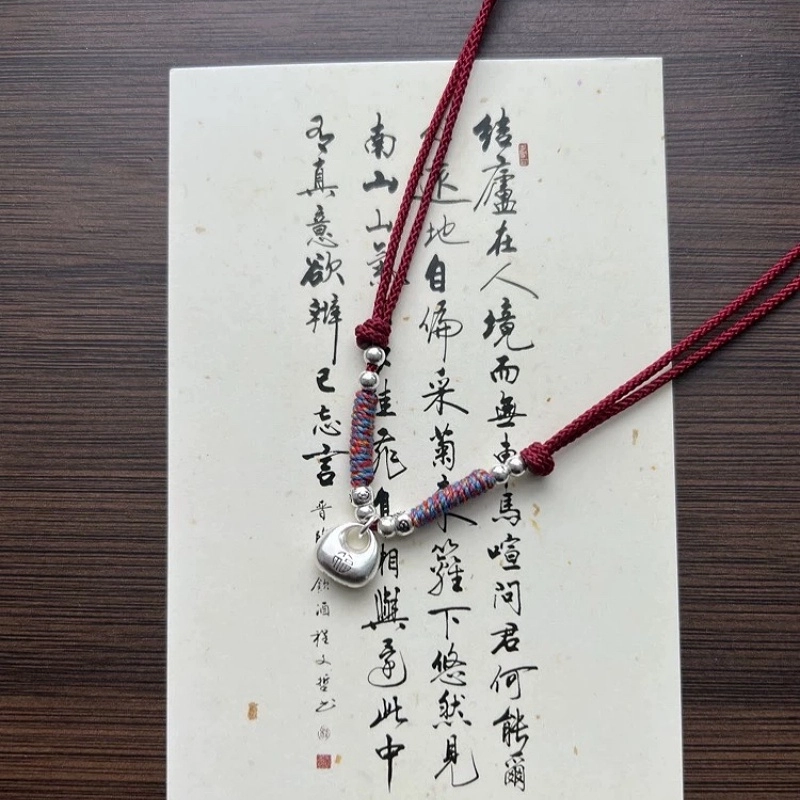 結廬在人境而無車馬喧問君何能爾
遠地自偏采菊東籬下悠然見
南山山氣佳飛相與還此中
有真意欲辨已忘言 晉飲酒程文哲书
福